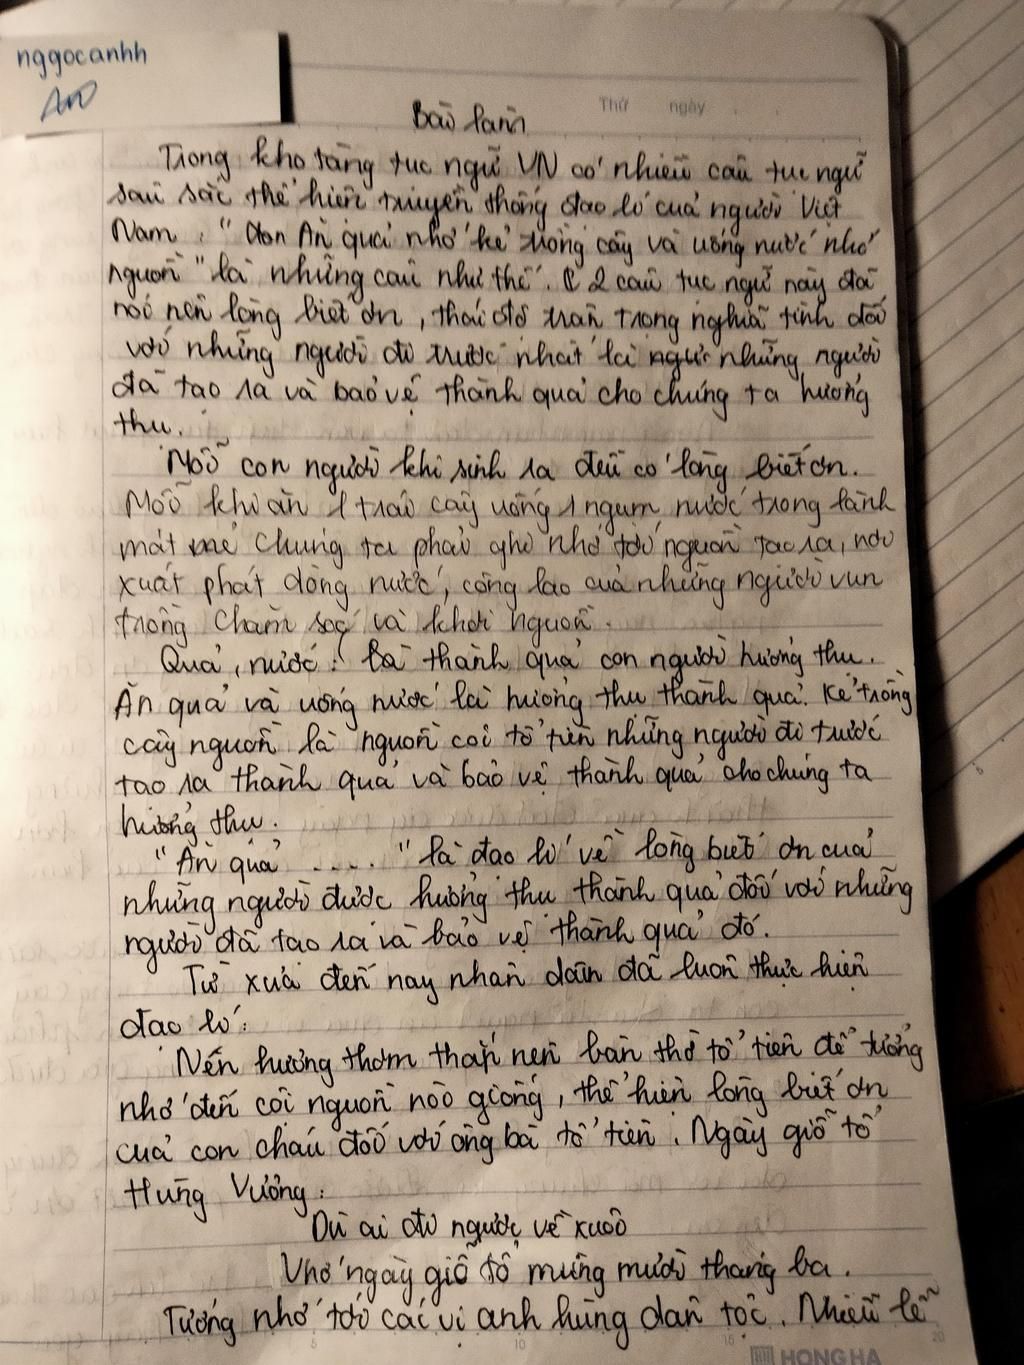 nggocanhh
Thứ ngày
Bài làm
Trong kho tàng tục ngữ VN có nhiều câu tục ngữ
sâu sắc thể hiện truyền thống đạo lí của người Việt
Nam. "Ăn quả nhớ kẻ trồng cây và uống nước nhớ
nguồn" là những câu như thế. 2 câu tục ngữ này đã
nói nên lòng biết ơn, thái độ trân trọng nghĩa tình đối
với những người đi trước nhất là những người
đã tạo ra và bảo vệ thành quả cho chúng ta hưởng
thụ.
Mỗi con người khi sinh ra đều có lòng biết ơn.
Mỗi khi ăn 1 trái cây uống 1 ngụm nước trong lành
mát mẻ chúng ta phải ghi nhớ tới nguồn tạo ra, nơi
xuất phát dòng nước, công lao của những người vun
trồng chăm sóc và khơi nguồn.
Quả, nước: Là thành quả con người hưởng thụ.
Ăn quả và uống nước là hưởng thụ thành quả. Kẻ trồng
cây nguồn là nguồn cội tổ tiên những người đi trước
tạo ra thành quả và bảo vệ thành quả cho chúng ta
hưởng thụ.
"Ăn quả ...." là đạo lí về lòng biết ơn của
những người được hưởng thụ thành quả đối với những
người đã tạo ra và bảo vệ thành quả đó.
Từ xưa đến nay nhân dân đã luôn thực hiện
đạo lí:
Nến hương thơm thắp nên bàn thờ tổ tiên để tưởng
nhớ đến cội nguồn nòi giống, thể hiện lòng biết ơn
của con cháu đối với ông bà tổ tiên. Ngày giỗ tổ
Hùng Vương:
Dù ai đi ngược về xuôi
Nhớ ngày giỗ tổ mùng mười tháng ba.
Tưởng nhớ tới các vị anh hùng dân tộc. Nhiều lễ
5 10 15 20
HONG HA